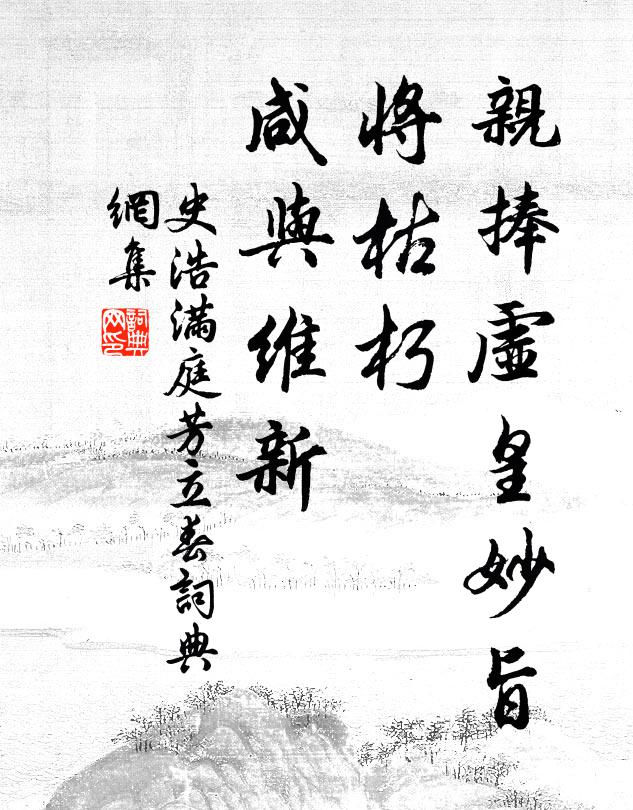 親捧虛皇妙旨
將枯朽
咸與維新
史浩滿庭芳立春詞典
網集
詞典
网印